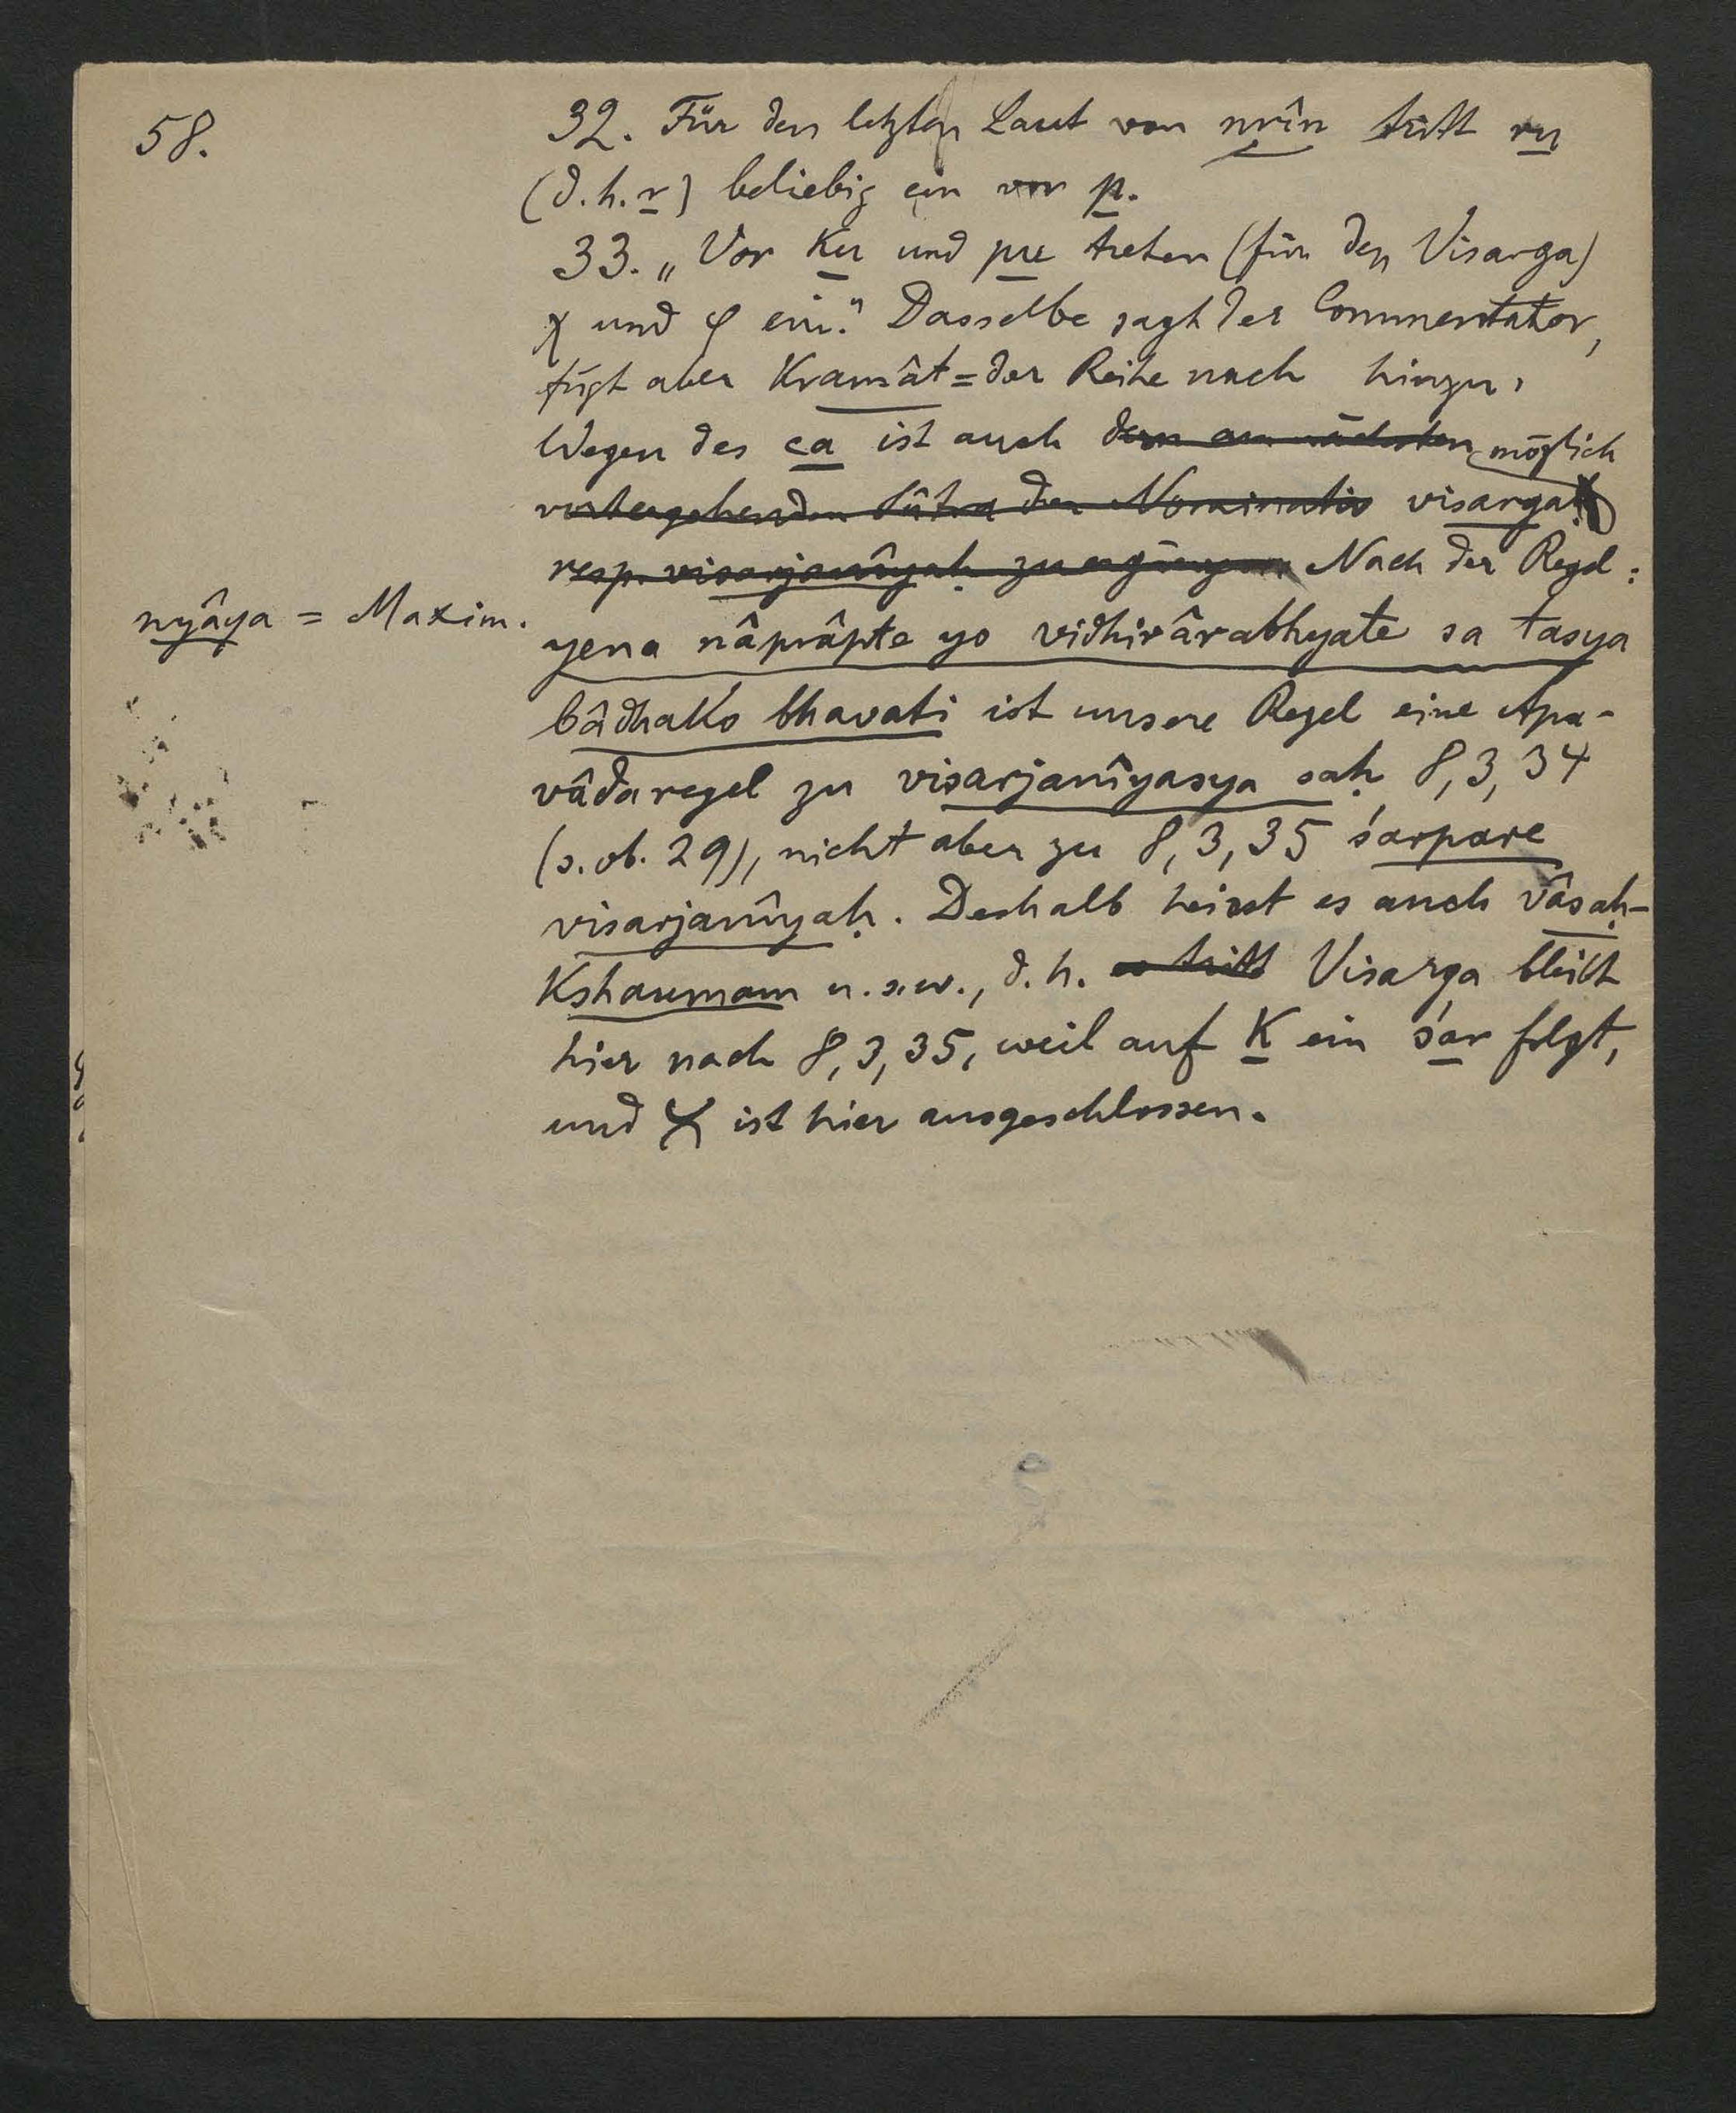 58.
32. Für den letzten Laut von nrîn tritt ru
(d. h. r) beliebig ein vor p.
33. „Vor ku und pu treten (für den Visarga)
χ und φ ein." Dasselbe sagt der Commentator,
fügt aber kramât = der Reihe nach hinzu,
Wegen des ca ist auch dem am nächsten möglich
vorhergehenden Sûtra der Nominativ visarga
resp. visarjanîyaḥ zu ergänzen Nach der Regel:
nyâya = Maxim.
yena nâprâpte yo vidhirârabhyate sa tasya
bâdhako bhavati ist unsere Regel eine Apa-
vâdaregel zu visarjanîyasya saḥ 8, 3, 34
(s. ob. 29), nicht aber zu 8, 3, 35 śarpare
visarjanîyaḥ. Deshalb heisst es auch vâsaḥ-
kshaumam u. s. w., d. h. es tritt Visarga bleibt
hier nach 8, 3, 35, weil auf k ein śar folgt,
und χ ist hier ausgeschlossen.